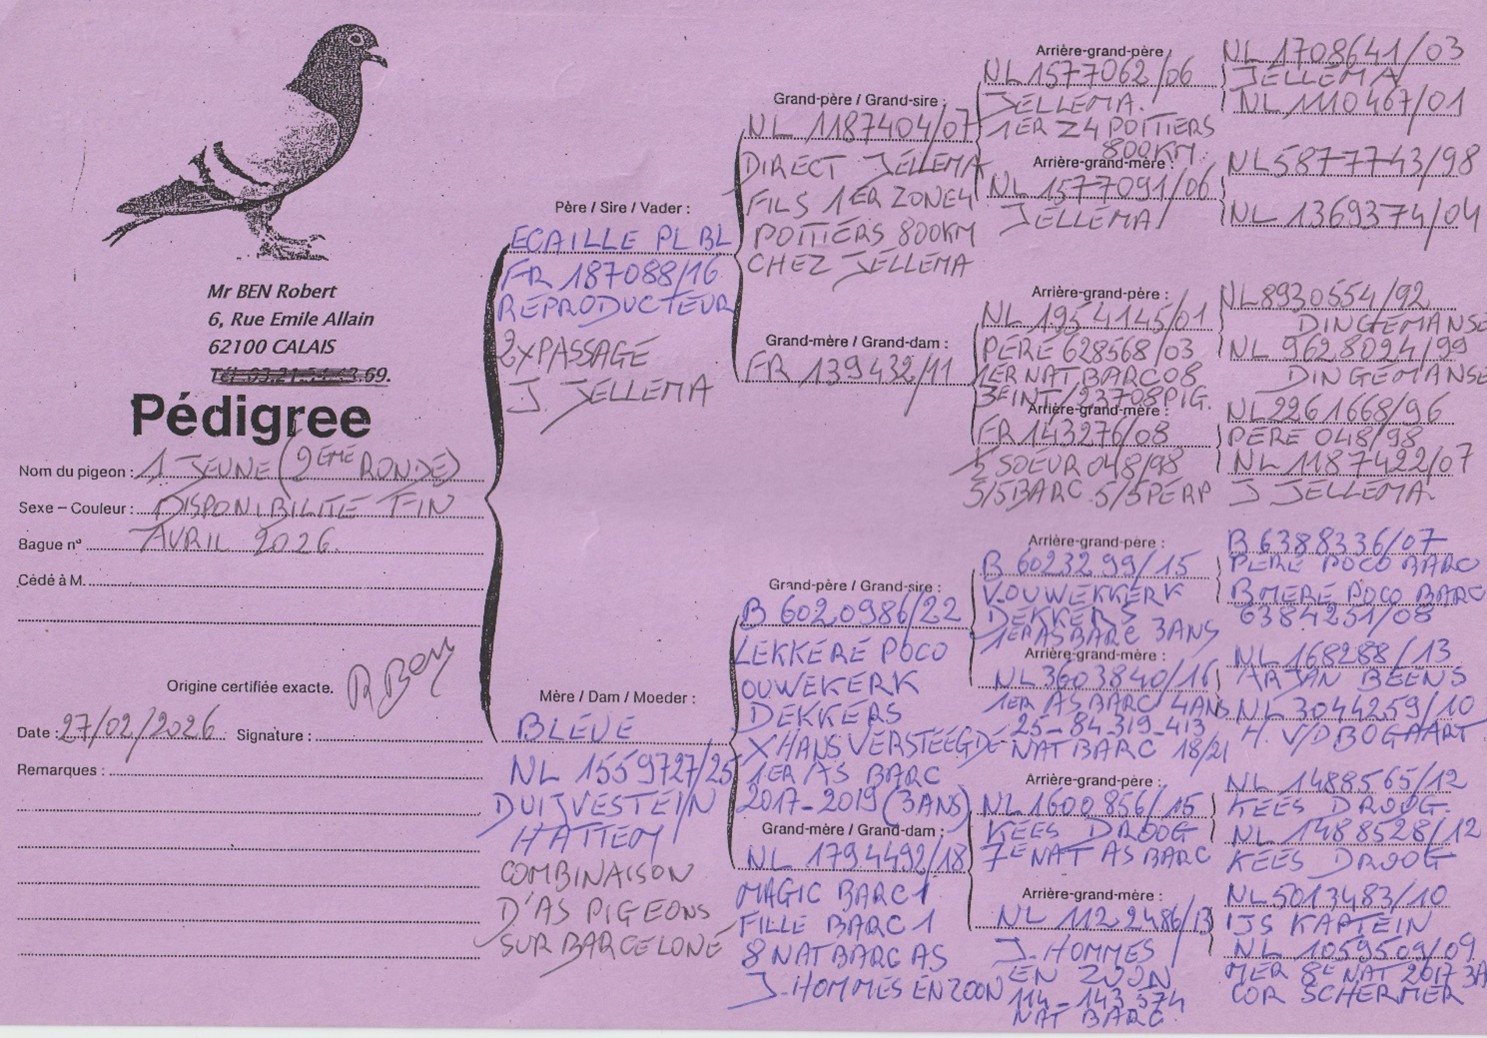 Mr BEN Robert
6, Rue Emile Allain
62100 CALAIS
Tél. 03.21.54.43.69.
Pédigree
Nom du pigeon : 1 JEUNE (2EME RONDE)
Sexe – Couleur : DISPONIBILITE FIN
Bague n° AVRIL 2026.
Cédé à M.
Origine certifiée exacte. R Ben
Date : 27/02/2026 Signature :
Remarques :
Père / Sire / Vader :
ECAILLE PL BL
FR 187088/16
REPRODUCTEUR
2XPASSAGE
J. JELLEMA
Mère / Dam / Moeder :
BLEUE
NL 1559727/25
DUIJVESTEIN
HATTEM
COMBINAISON
D'AS PIGEONS
SUR BARCELONE
Grand-père / Grand-sire :
NL 1187404/07
DIRECT JELLEMA
FILS 1ER ZONE4
POITIERS 800KM
CHEZ JELLEMA
Grand-mère / Grand-dam :
FR 139432/11
Grand-père / Grand-sire :
B 6020986/22
LEKKERE POCO
OUWEKERK
DEKKERS
X HANS VERSTEEGDE
1ER AS BARC
2017-2019 (3ANS)
Grand-mère / Grand-dam :
NL 1794492/18
MAGIC BARC 1
FILLE BARC 1
8 NAT BARC AS
J-HOMMES EN ZOON
Arrière-grand-père :
NL 1577062/06
JELLEMA.
1ER Z4 POITIERS
800KM
Arrière-grand-mère :
NL 1577091/06
JELLEMA
Arrière-grand-père :
NL 1954145/01
PERE 628568/03
1ER NAT BARC 08
3EINT/23708PIG.
Arrière-grand-mère :
FR 143276/08
½ SOEUR 048/98
5/5BARC 5/5PERP
Arrière-grand-père :
B 6023299/15
V.OUWEKKERK
DEKKERS
1ER AS BARC 3ANS
Arrière-grand-mère :
NL 3603840/16
1ER AS BARC 4ANS
25-84-319-413
NAT BARC 18/21
Arrière-grand-père :
NL 1600856/15
KEES DROOG
7E NAT AS BARC
Arrière-grand-mère :
NL 1122486/13
J-HOMMES
EN ZOON
114-143.574
NAT BARC.
NL 1708641/03
JELLEMA
NL 1110467/01
NL 5877743/98
NL 1369374/04
NL 8930554/92
DINGEMANSE
NL 9628024/99
DINGEMANSE
NL 2261668/96
PERE 048/98
NL 1187422/07
J JELLEMA.
B 6388336/07
PERE POCO BARC
B MERE POCO BARC
6384251/08
NL 168288/13
ARJAN BEENS
NL 3044259/10
H. V/D BOGAART
NL 1488565/12
KEES DROOG.
NL 1488528/12
KEES DROOG
NL 5013483/10
IJS KAPTEIN
NL 1059509/09
MER 8E NAT 2017 3A
COR SCHERMER